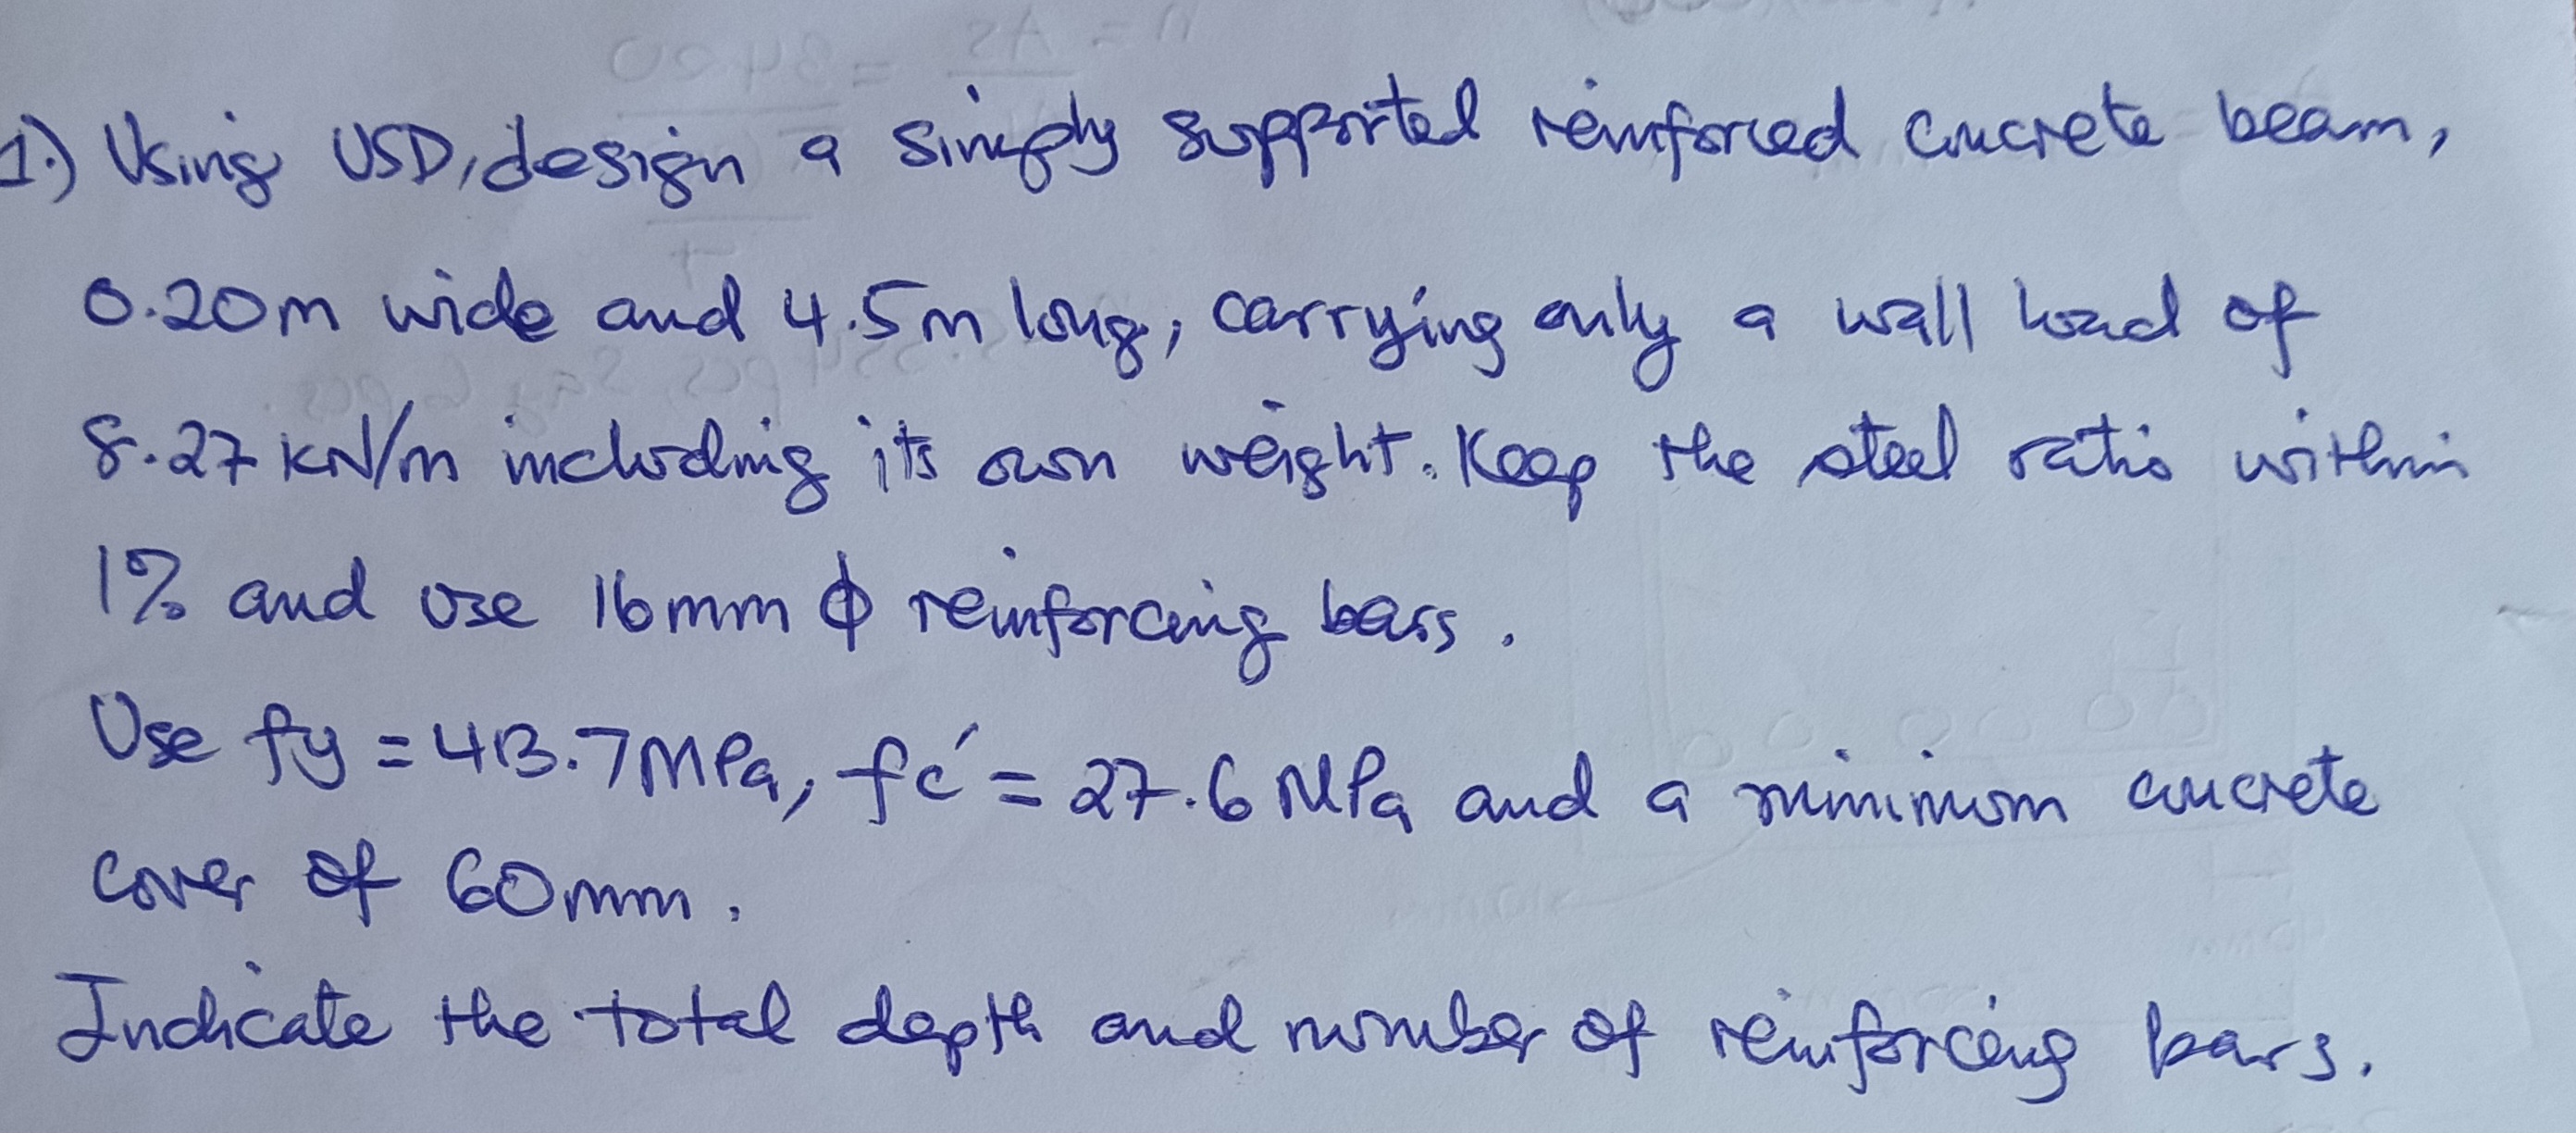 1.) Using USD, design a simply supported reinforced concrete beam,
0.20m wide and 4.5m long, carrying only a wall load of
8.27 kN/m including its own weight. Keep the steel ratio within
1% and use 16mm ϕ reinforcing bars.
Use fy = 413.7 MPa, fc' = 27.6 MPa and a minimum concrete
cover of 60mm.
Indicate the total depth and number of reinforcing bars.